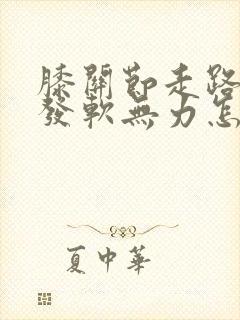 膝關節走路
發軟無力怎
夏中華